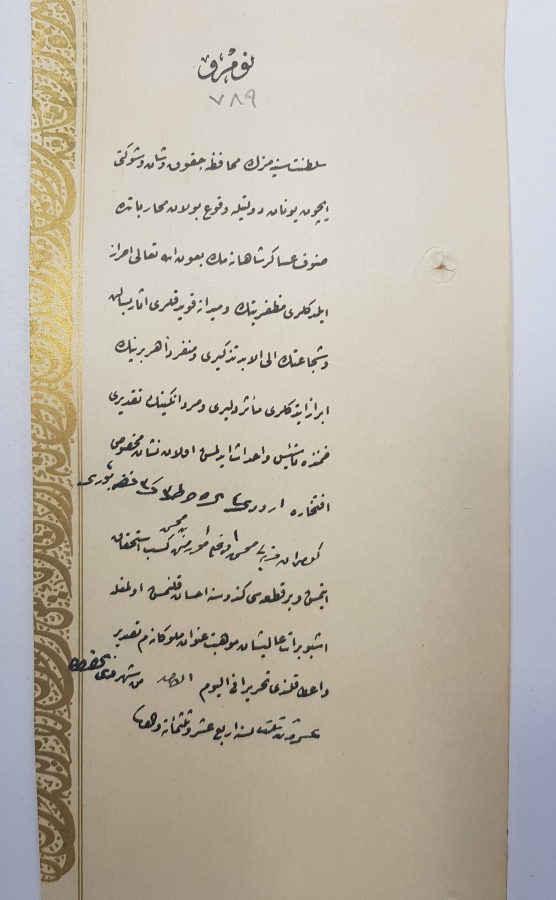 نومرو
٧٨٩
سلطنت سنیه مزك محافظهٔ حقوق وشان وشوکتی
ایچون یونان دولتیله وقوع بولان محارباتده
صنوف عساکر شاهانه مك بعون الله تعالی احراز
ایلدکلری مظفریتك ومیدانه قویدقلری آثار بسالت
وشجاعتك الی الابد تذکیری ومنفرداً هر برینك
ابراز ایتدکلری مآثر دلیری ومردانکینك تقدیری
ضمننده تأسیس واحداث ایدلمش اولان نشان مخصوص
افتخاره اردوی
کسب استحقاق
ایتمش وبر قطعه سی کندوسنه احسان قلنمش اولمغله
اشبو برات عالیشان موهبت عنوان ملوکانه م تقدیر
واعطا قلندی تحریراً فی الیوم الاحد من شهر
سنه اربع عشر وثلثمائة والف